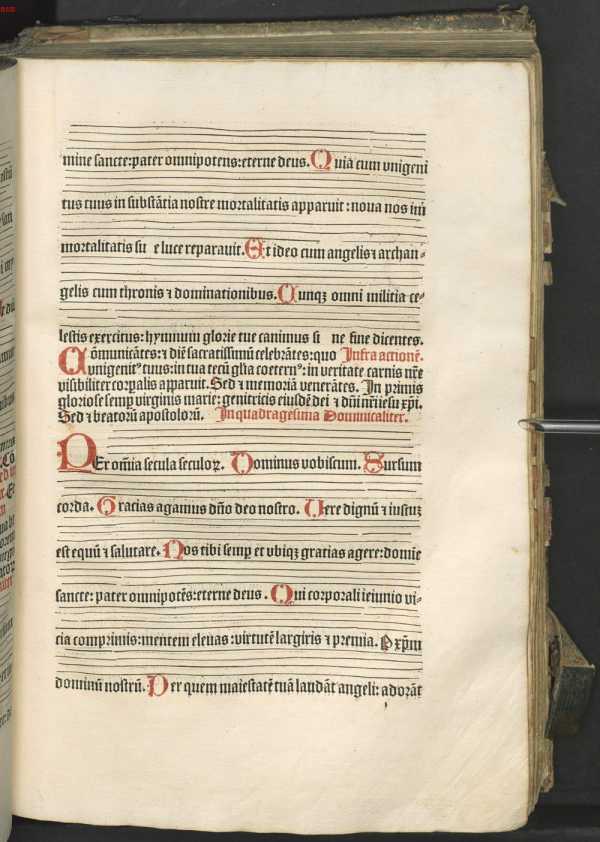 mine sancte:pater omnipotens:eterne deus. Quia cum vnigeni
tus tuus in substãtia nostre mortalitatis apparuit : noua nos im
mortalitatis su e luce reparauit. Et ideo cum angelis ⁊ archan⸗
gelis cum thronis ⁊ dominationibus. Cunqꝫ omni militia ce⸗
lestis exercitus: hymnum glorie tue canimus si ne fine dicentes.
Cõmunicãtes: ⁊ diẽ sacratissimũ celebrãtes: quo Infra actionẽ.
vnigenitꝰ tuus: in tua tecũ gl̃ia coeternꝰ: in veritate carnis nr̃e
visibiliter corꝑalis apparuit. Sed ⁊ memoriã venerãtes. In primis
gloriose semꝑ virginis marie: genitricis eiusdẽ dei ⁊ dñi nr̃i iesu xp̃i.
Sed ⁊ beatorũ apostolorũ. In quadragesima Dominicaliter.
PEr om̃ia secula seculoꝝ. Dominus vobiscum. Sursum
corda. Gracias agamus dño deo nostro. Uere dignũ ⁊ iustuꝫ
est equũ ⁊ salutare. Nos tibi semꝑ et vbiqꝫ gratias agere: domie
sancte: pater omnipotẽs: eterne deus . Qui corporali ieiunio vi⸗
cia comprimis: mentem eleuas : virtutẽ largiris ⁊ premia. P xp̃m
dominũ nostrũ. Per quem maiestatẽ tuã laudãt angeli: adorãt